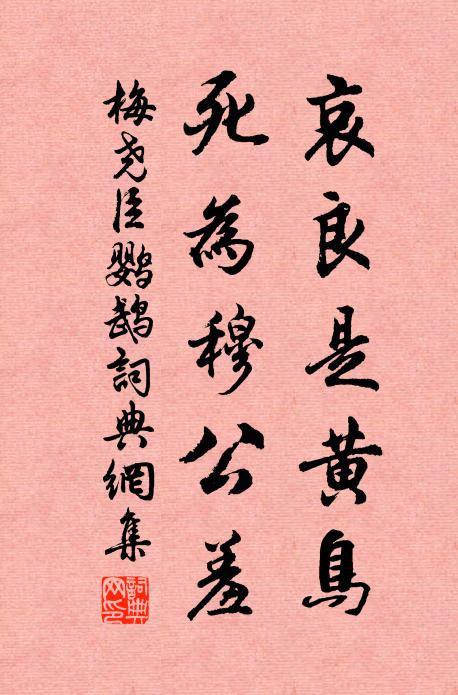 哀良是黄鳥
死為穆公羞
梅尧臣鸚鵡詞典網集
詞典網印